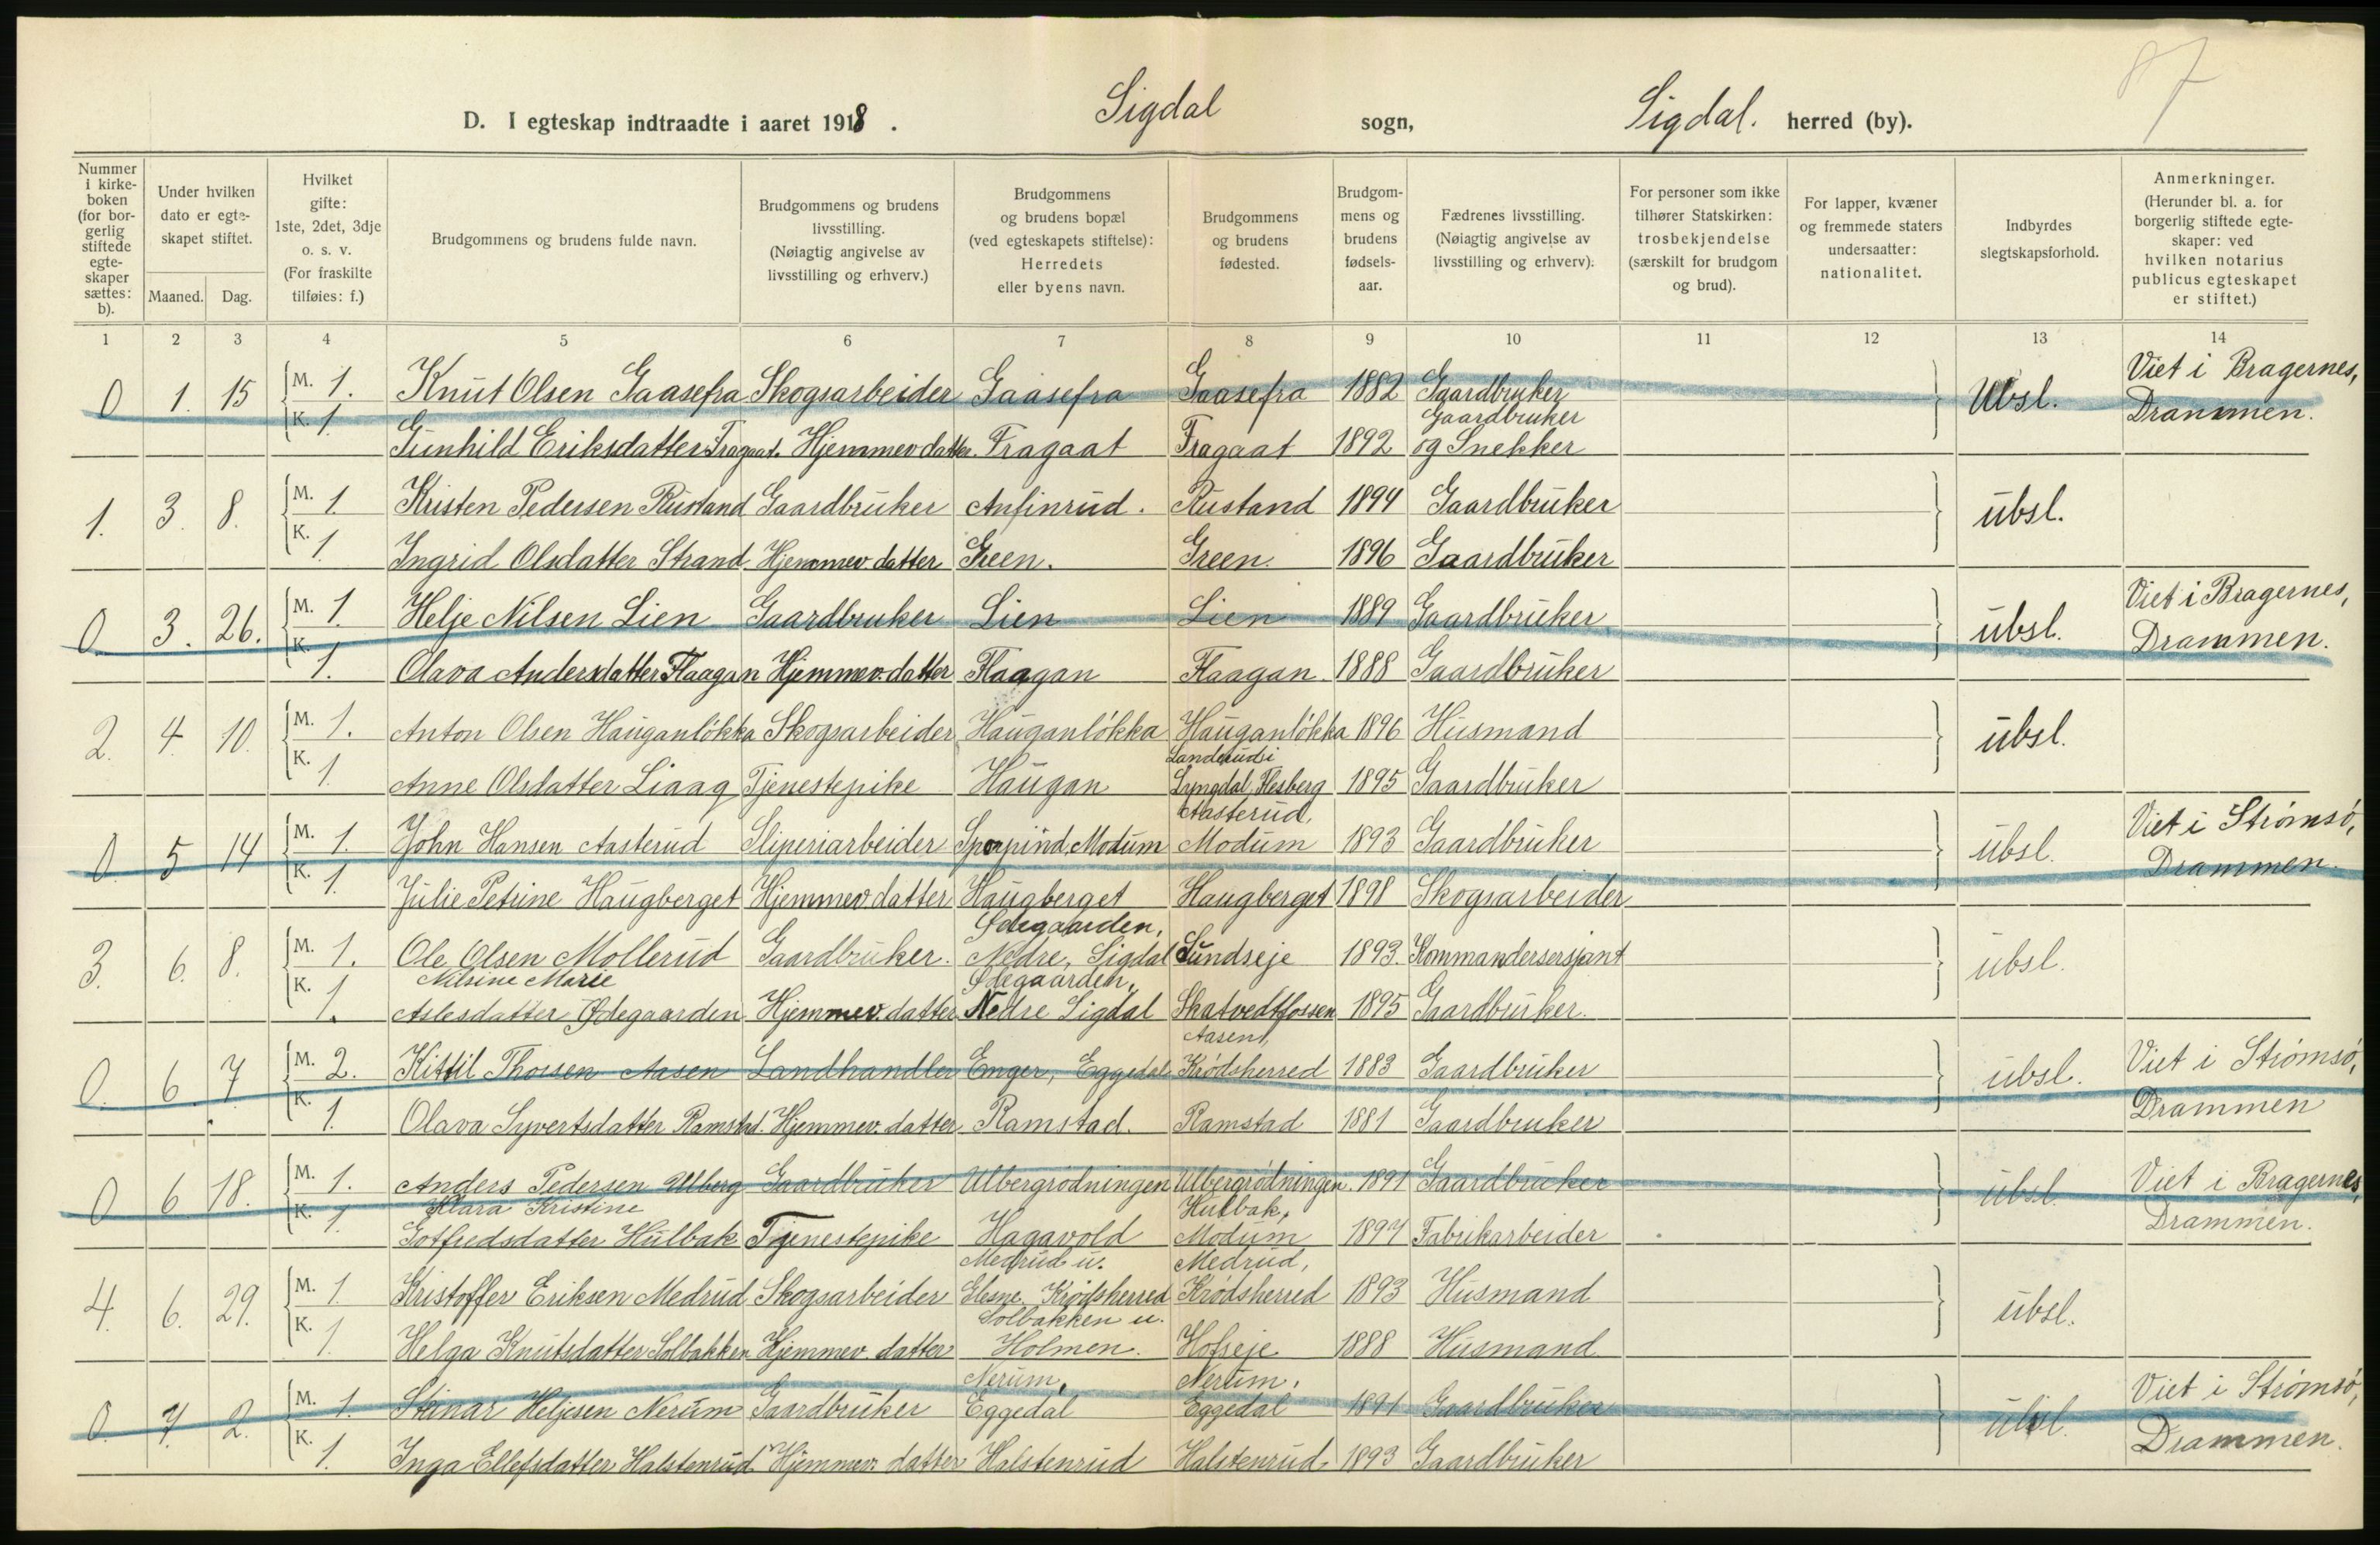 87
D. I egteskap indtraadte i aaret 1918. Sigdal sogn, Sigdal. herred (by).
Nummer i kirke-boken (for bor-gerlig stiftede egte-skaper sættes: b).
Under hvilken dato er egte-skapet stiftet.
Maaned. Dag.
Hvilket gifte: 1ste, 2det, 3dje o. s. v. (For fraskilte tilføies: f.)
Brudgommens og brudens fulde navn.
Brudgommens og brudens livsstilling. (Nøiagtig angivelse av livsstilling og erhverv.)
Brudgommens og brudens bopæl (ved egteskapets stiftelse): Herredets eller byens navn.
Brudgommens og brudens fødested.
Brudgom-mens og brudens fødsels-aar.
Fædrenes livsstilling. (Nøiagtig angivelse av livsstilling og erhverv):
For personer som ikke tilhører Statskirken: trosbekjendelse (særskilt for brudgom og brud).
For lapper, kvæner og fremmede staters undersaatter: nationalitet.
Indbyrdes slegtskapsforhold.
Anmerkninger. (Herunder bl. a. for borgerlig stiftede egte-skaper: ved hvilken notarius publicus egteskapet er stiftet.)
1 2 3 4 5 6 7 8 9 10 11 12 13 14
0 1. 15 M. 1. Knut Olsen Gaasefra Skogsarbeider Gaasefra Gaasefra 1882 Gaardbruker Ubsl. Viet i Bragernes, Drammen.
K. 1. Gunhild Eriksdatter Fragaat. Hjemmev datter. Fragaat Fragaat 1892 Gaardbruker og Snekker
1. 3. 8. M. 1 Kristen Pedersen Rustand Gaardbruker Anfinrud. Rustand 1894 Gaardbruker ubsl.
K. 1 Ingrid Olsdatter Strand Hjemmev datter Green. Green. 1896 Gaardbruker
0. 3. 26. M. 1. Helje Nilsen Lien Gaardbruker Lien Lien 1889 Gaardbruker ubsl. Viet i Bragernes, Drammen.
K. 1. Olava Andersdatter Flaagan Hjemmev. datter Flaagan Flaagan 1888 Gaardbruker
2. 4. 10. M. 1. Anton Olsen Hauganløkka Skogsarbeider Hauganløkka Hauganløkka 1896 Husmand ubsl.
K. 1. Anne Olsdatter Liaag Tjenestepike Haugan Landerudsi Lyngdal, Flesberg 1895 Gaardbruker
0. 5 14 M. 1. John Hansen Aasterud Sliperiarbeider Modum Aasterud, Modum 1893 Gaardbruker ubsl. Viet i Strømsø, Drammen.
K. 1. Julie Petrine Haugberget Hjemmev datter Haugberget Haugberget 1898 Skogsarbeider
3. 6. 8. M. 1. Ole Olsen Mollerud Gaardbruker. Ødegaarden, Nedre, Sigdal Sundseje 1893. Kommandersersjant ubsl.
K. 1. Nilsine Marie Aslesdatter Ødegaarden Hjemmev. datter Ødegaarden, Nedre Sigdal Skatvedtfossen 1895 Gaardbruker.
0. 6 7. M. 2. Kittil Thorsen Aasen Landhandler Enger, Eggedal Aasent, Krødsherred 1883 Gaardbruker ubsl. Viet i Strømsø, Drammen
K. 1. Olava Syvertsdatter Ramstad. Hjemmev. datter Ramstad. Ramstad 1881 Gaardbruker
0 6 18. M. 1. Anders Pedersen Ulberg Gaardbruker Ulbergrødningen Ulbergrødningen. 1891 Gaardbruker ubsl. Viet i Bragernes, Drammen.
K. 1. Klara Kristine Gotfredsdatter Hulbak Tjenestepike Hagavold Hulbak, Modum 1897 Fabrikarbeider
4. 6. 29. M. 1 Kristoffer Eriksen Medrud Skogsarbeider Medrud u. Glesne. Krødsherred Medrud, Krødsherred 1893 Husmand ubsl.
K. 1 Helga Knutsdatter Solbakken Hjemmev. datter Solbakken u. Holmen. Hofseje 1888 Husmand
0. 7. 2. M. 1. Steinar Heljesen Nerum Gaardbruker Nerum, Eggedal Nerum, Eggedal 1891 Gaardbruker ubsl. Viet i Strømsø, Drammen.
K. 1. Inga Ellefsdatter Halstenrud Hjemmev. datter Halstenrud Halstenrud. 1893 Gaardbruker